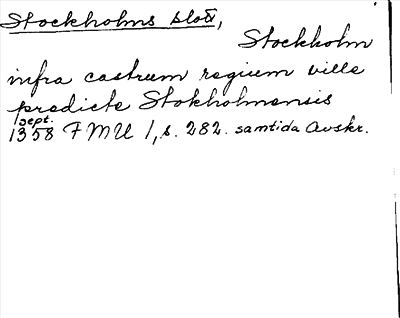 Stockholms slott,
Stockholm
infra castrum regium ville
predicte Stokholmensis
sept.
1358 FMU 1, s. 282. samtida Avskr.